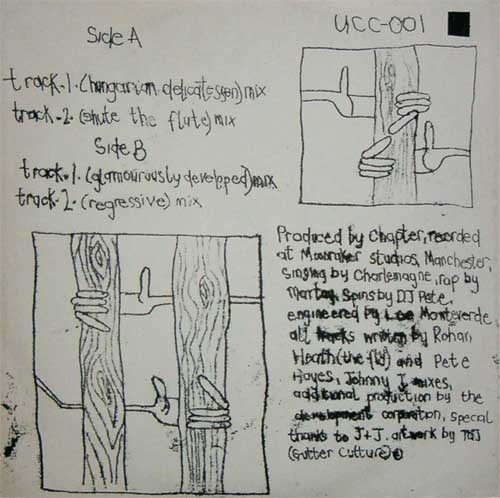 Side A
UCC-001
track.1. (hungarian delicatessen) mix
track.2. (shute the flute) mix
Side B
track.1. (glamourously developed) mix
track.2. (regressive) mix
Produced by Chapter, recorded
at Moonraker studios, Manchester,
Singing by Charlemagne, rap by
Spins by DJ Pete,
engineered by Lee Monteverde
all tracks written by Rohan
Heath (the fly) and Pete
Hayes, Johnny J mixes,
additional production by the
development corporation, special
thanks to J+J. artwork by
(Gutter Culture)